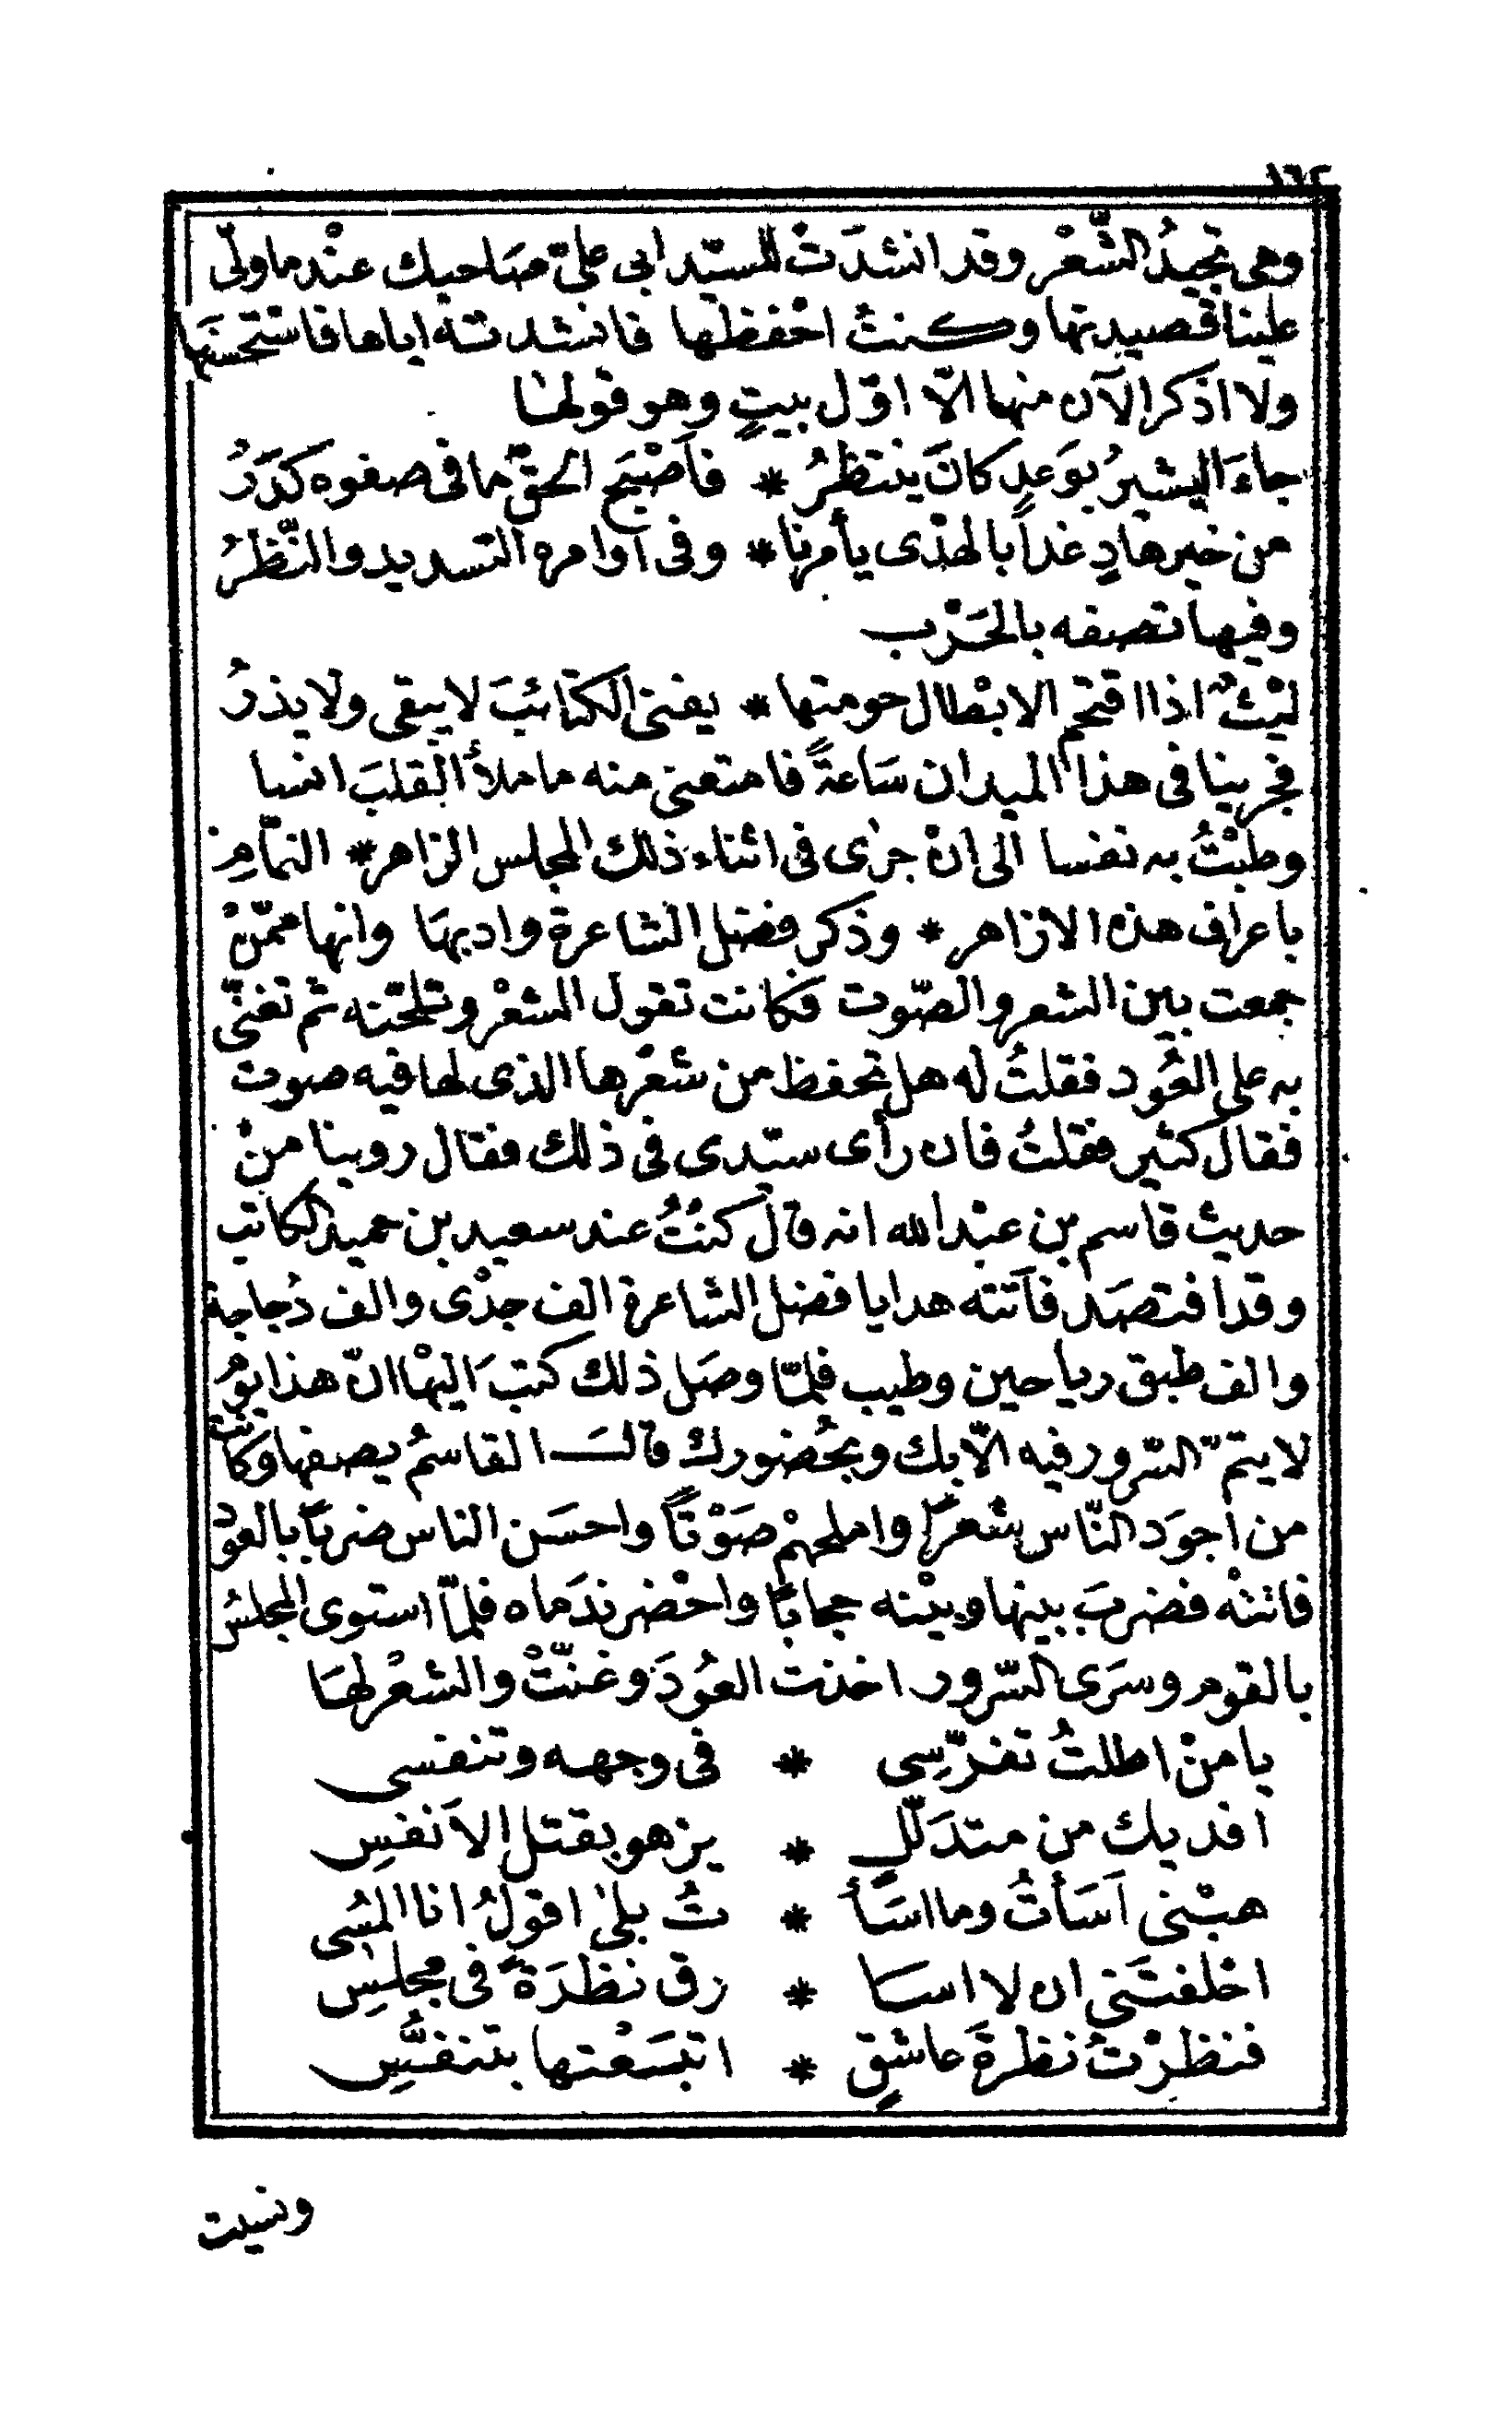 ١٦٢
وهى تجيدُ الشّعْر وقد انشدَتْ للسيّد ابى علىّ صَاحبك عنْد ما ولّى
علينا قصيدتها وكنتُ احْفظها فانشدتنهُ اياها فاسْتحسنَها
ولا اذكر الآن منها الّا اوّل بيتٍ وهو قولهَا
جاءَ البشيرُ بوَعدٍ كانَ ينتظرُ * فاَصْبحَ الحقّ ما فى صفوه كدَرُ
من خير هادٍ غداً بالهدْى يأمرنا * وفى اوامره التسديد والنّظرُ
وفيها تصفه بالحَرْب
ليْثٌ اذا اقتحم الابْطال حومتها * يفنى الكتائبَ لا يبقى ولا يذرُ
فجرينا فى هذا الميدان سَاعةً فامتعنى منه ما ملأ القلبَ انسا
وطبْتُ به نفسا الى انْ جرٰى فى اثناء ذلك المجلس الزاهر * النمّامِ
باعراف هذه الازاهر * وذكر فضل الشاعرة وادبهَا وانها ممّنْ
جمعت بين الشعر والصّوت فكانت تقول الشعْر وتلحّنه ثم تغنّى
به على العُود فقلتُ له هل تحفظ من شعْرها الذى لها فيه صوت
فقال كثير فقلتُ فان رأى سيّدى فى ذلك فقال روينا منْ
حديث قاسم بن عبْد الله انه قال كنْتُ عند سعيد بن حميد الكاتب
وقد افتصَد فآتته هدايا فضل الشاعرة الف جدْى والف دُجاجة
والف طبق رياحين وطيب فلمّا وصَل ذلك كتبَ اليهْا انّ هذا يومُ
لا يتمّ السّرور فيه الّا بك وبحُضورك قالَ القاسمُ يصفها وكانت
من اجوَد النّاس شعْراً واملحهْم صَوْتاً واحسَن الناس ضرباً بالعود
فاتتْه فضربَ بينها وبيْنه حجاباً واحْضر ندَماه فلمّا استوى المجلسُ
بالقوم وسرَى السّرور اخذت العُودَ وغنّتْ والشعْر لهَا
يا منْ اطلتُ تفرّسِى * فى وجهه وتنفسى
افديك من متدلّلٍ * يزهو بقتل الاَنفسِ
هبْنى اَسَأتُ وما اسَأ * تُ بلىٰ اقولُ انا المسُى
احْلفتَنى ان لا اسا * رق نظرَةً فى مجلسِ
فنظرْتُ نظرةَ عاشقٍ * اتبَعْتها بتنفسِّ
ونسيت